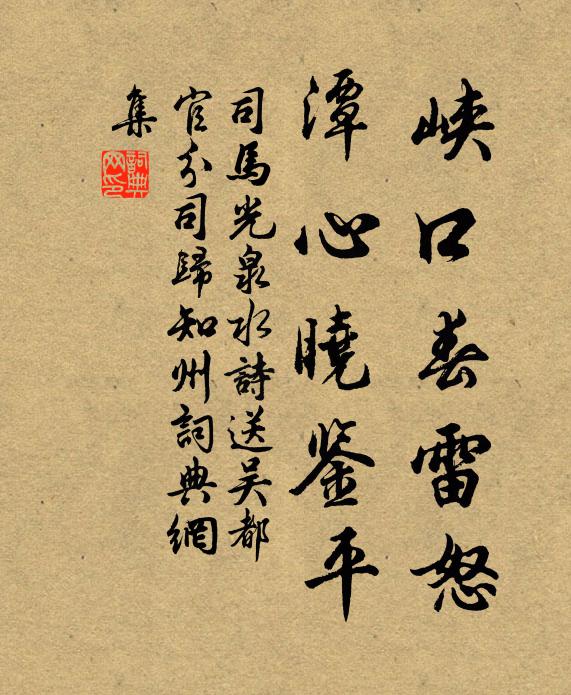 峡口春雷怒
潭心曉鉴平
司馬光泉水詩送吴都
官分司歸知州詞典網
集
詞典
网印